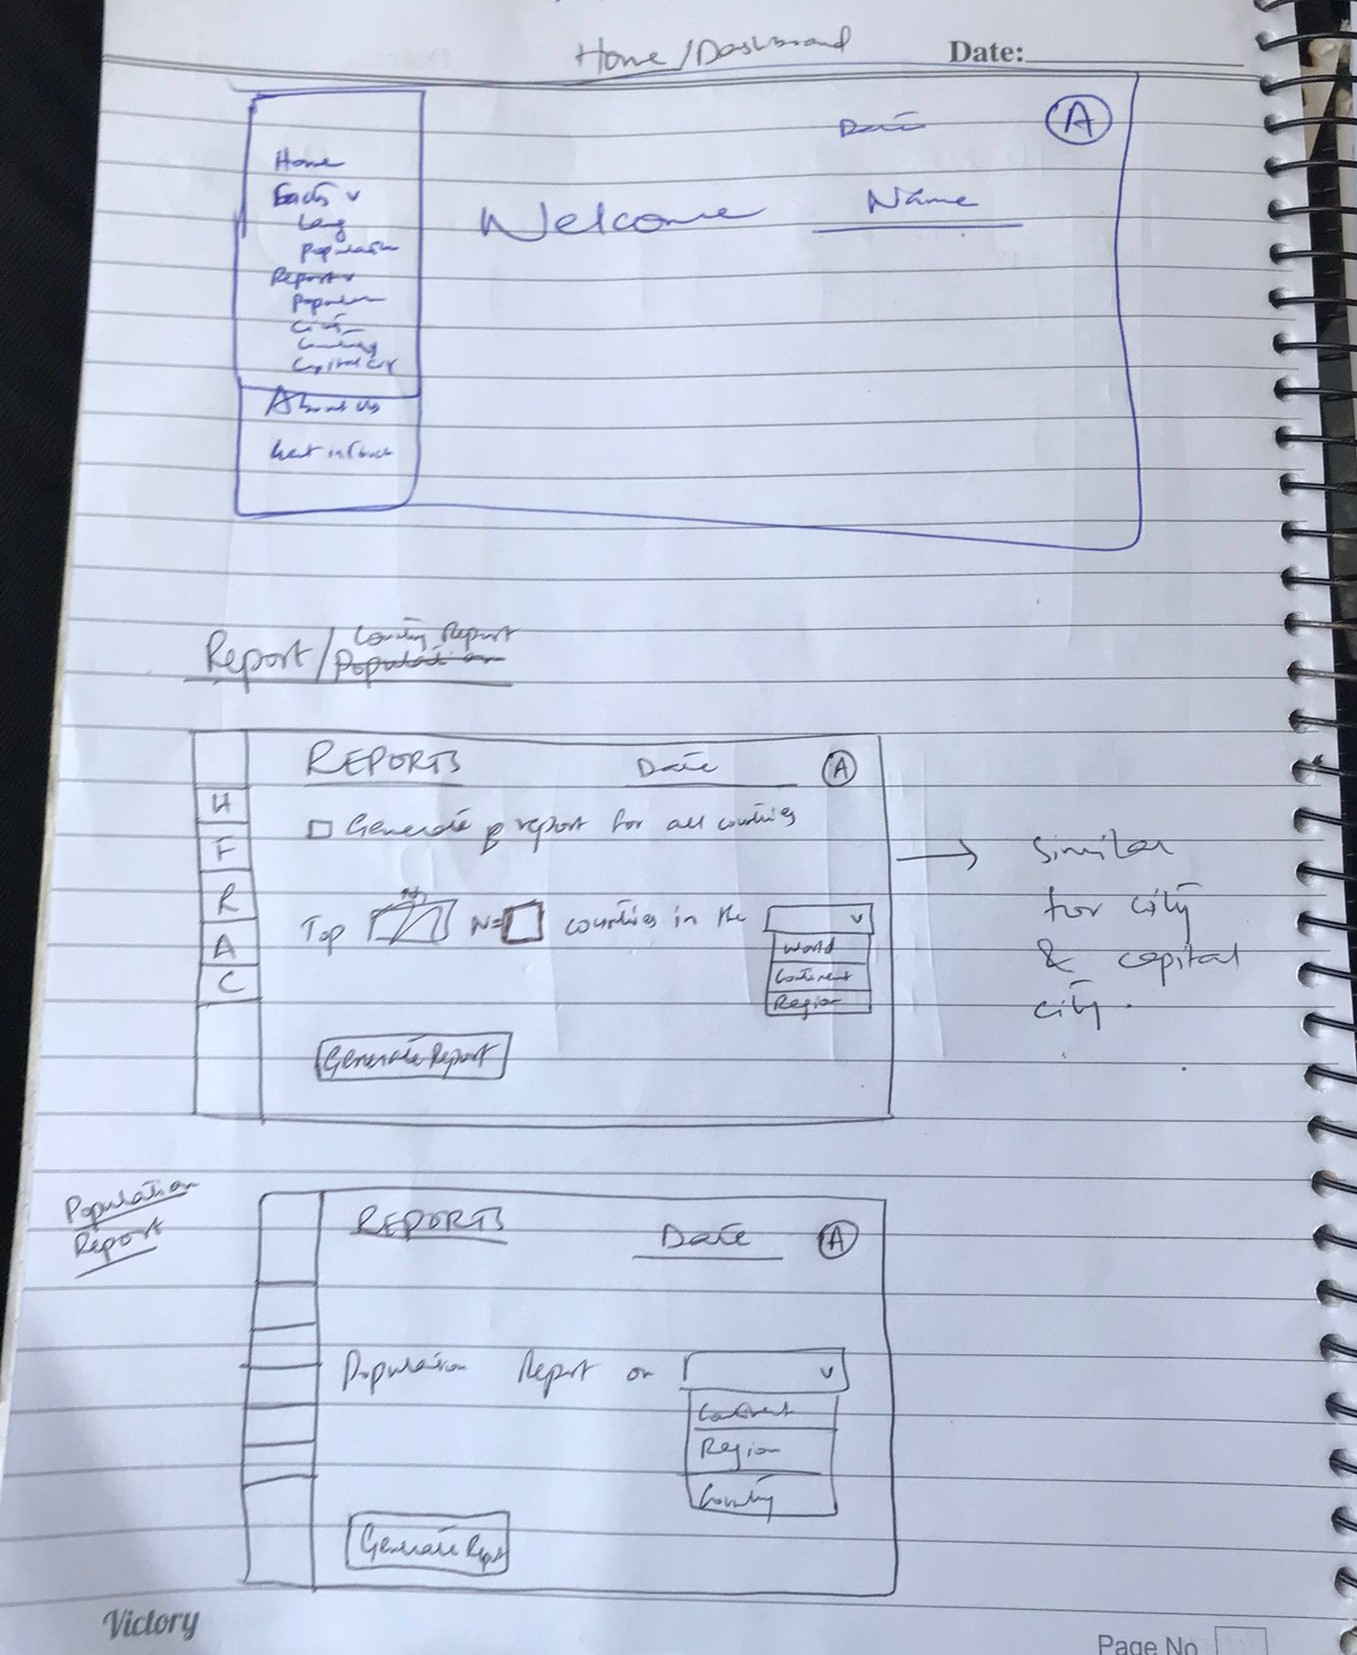 Home/Dashboard Date:
Date A
Home
Facts v
Lang
Population
Welcome Name
Report v
Population
City
Country
Capital City
About Us
Get in touch
Report/Country Report
Population
REPORTS Date A
H
☐ Generate report for all countries
F
R
Top N= countries in the v
A
World
C
Continent
Region
Generate Report
→ Similar
for city
& capital
city.
Population
Report
REPORTS Date A
Population Report on v
Continent
Region
Country
Generate Report
Victory
Page No